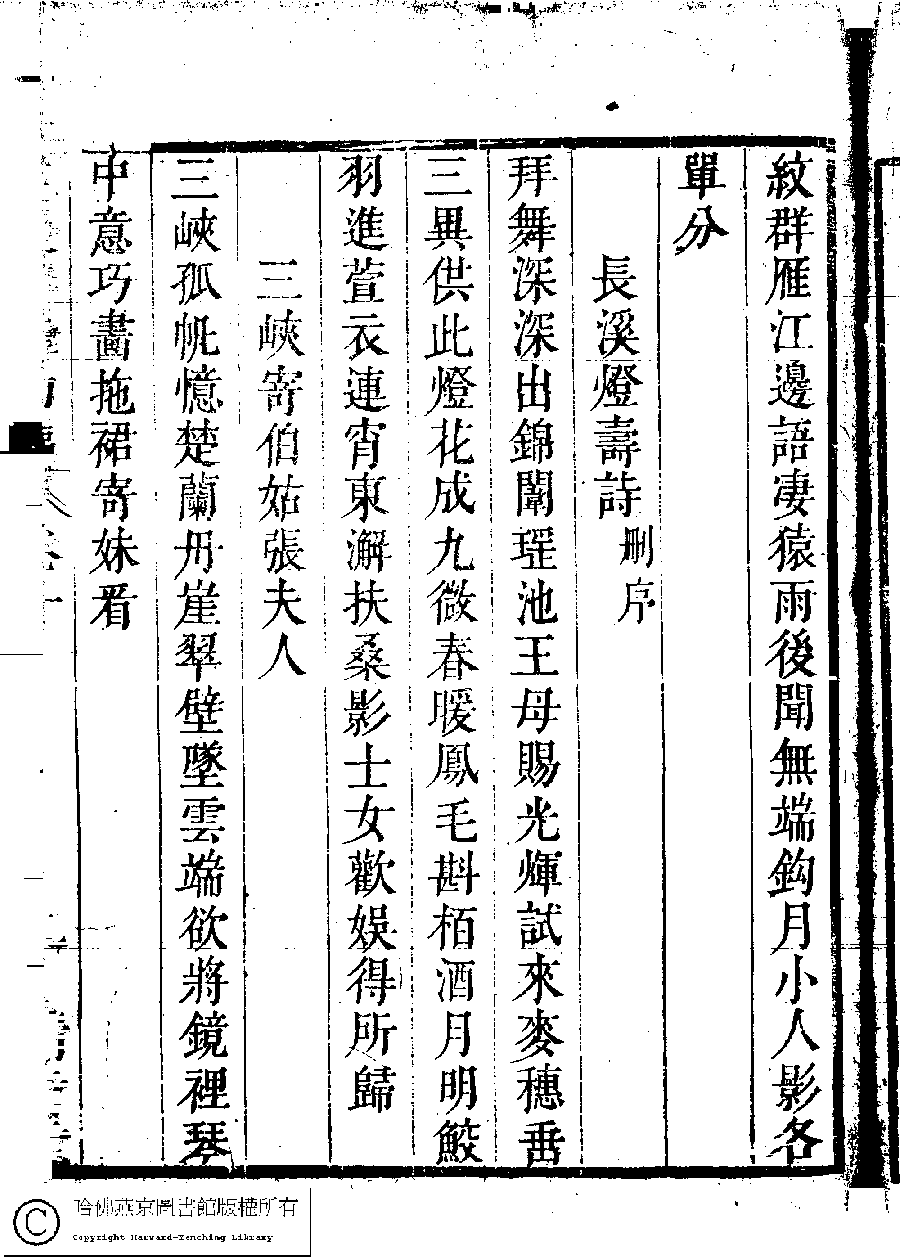 紋群雁江邊語淒猿雨後聞無端鈎月小人影各
單分
長溪燈壽詩 刪序
拜舞深深出錦闈瑶池王母賜光輝試來麥穗垂
三異供此燈花成九微春暖鳳毛斟栢酒月明鮫
羽進萱衣連宵東澥扶桑影士女歡娱得所歸
三峽寄伯姑張夫人
三峽孤帆憶楚蘭丹崖翠壁墜雲端欲將鏡裡琴
中意巧畵拖裙寄妹看
哈佛燕京圖書館版權所有
Copyright Harvard-Yenching Library